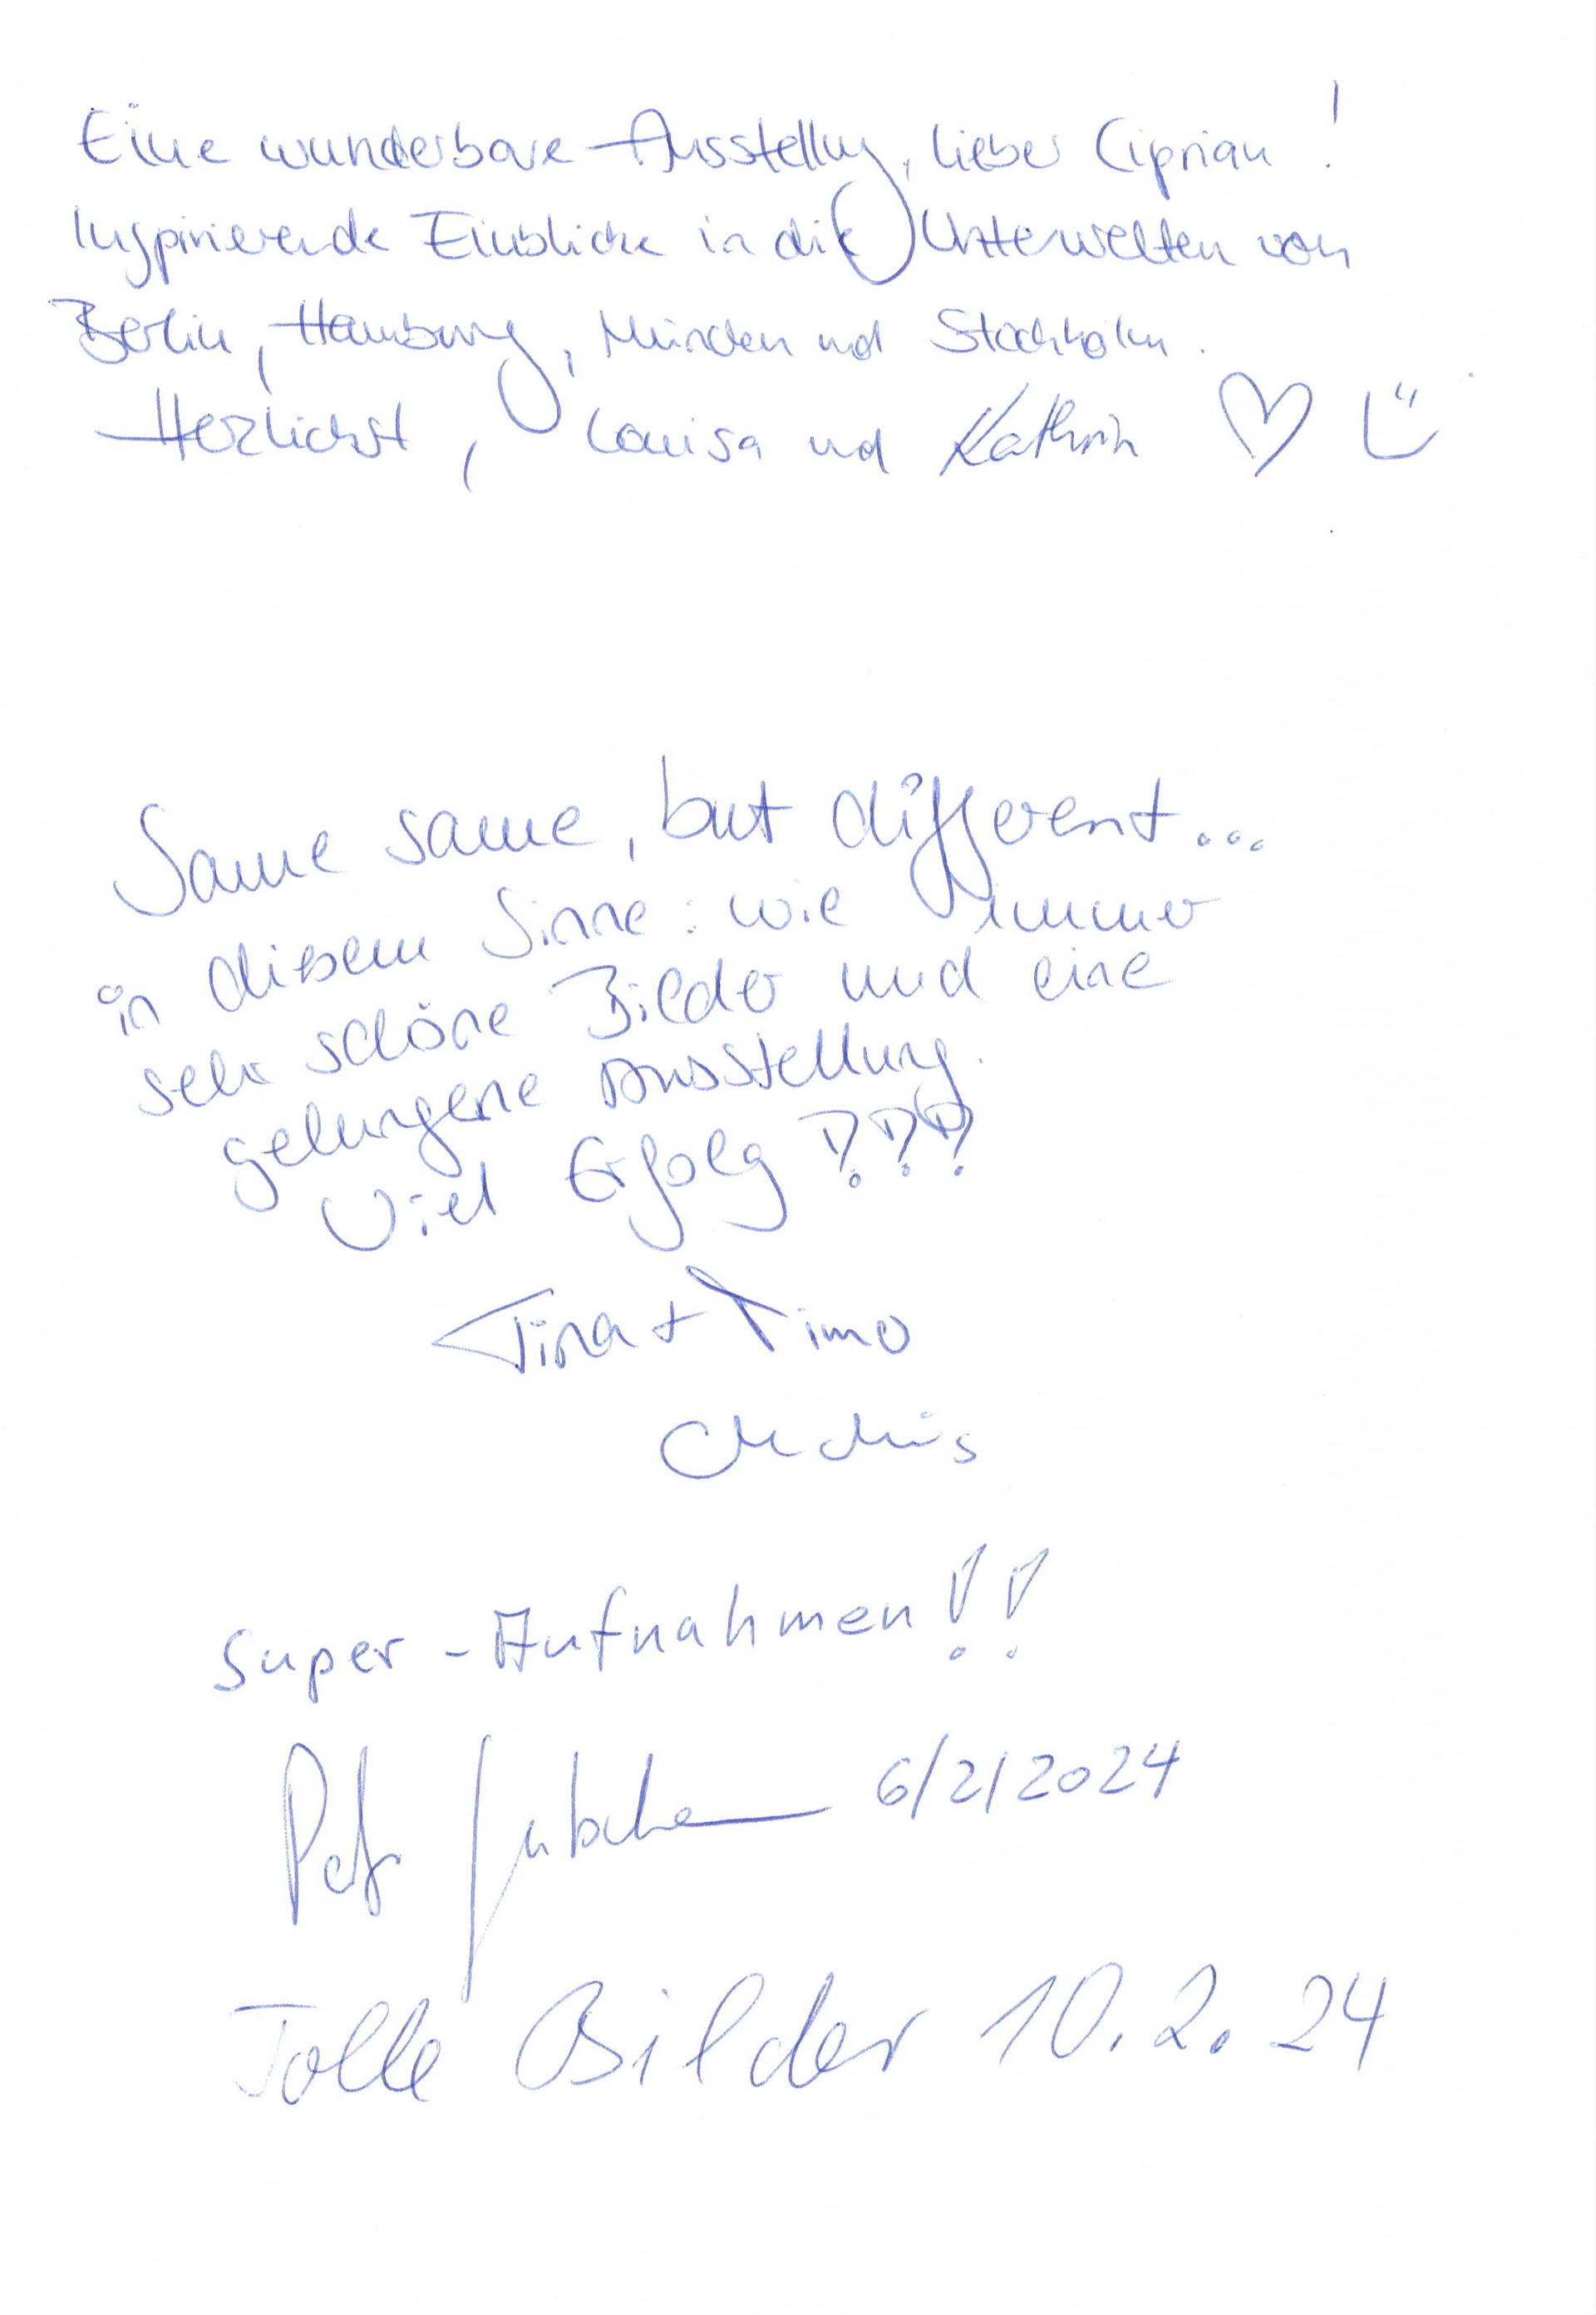 Eine wunderbare Ausstellung, lieber Ciprian!
Inspirierende Einblicke in die Unterwelten von
Berlin, Hamburg, München und Stockholm.
Herzlichst, Louisa und Kathrin
Same same, but different...
in diesem Sinne: wie immer
sehr schöne Bilder und eine
gelungene Ausstellung.
Viel Erfolg!!!
Tina + Timo
Super-Aufnahmen!!
6/2/2024
Tolle Bilder 10.2.24